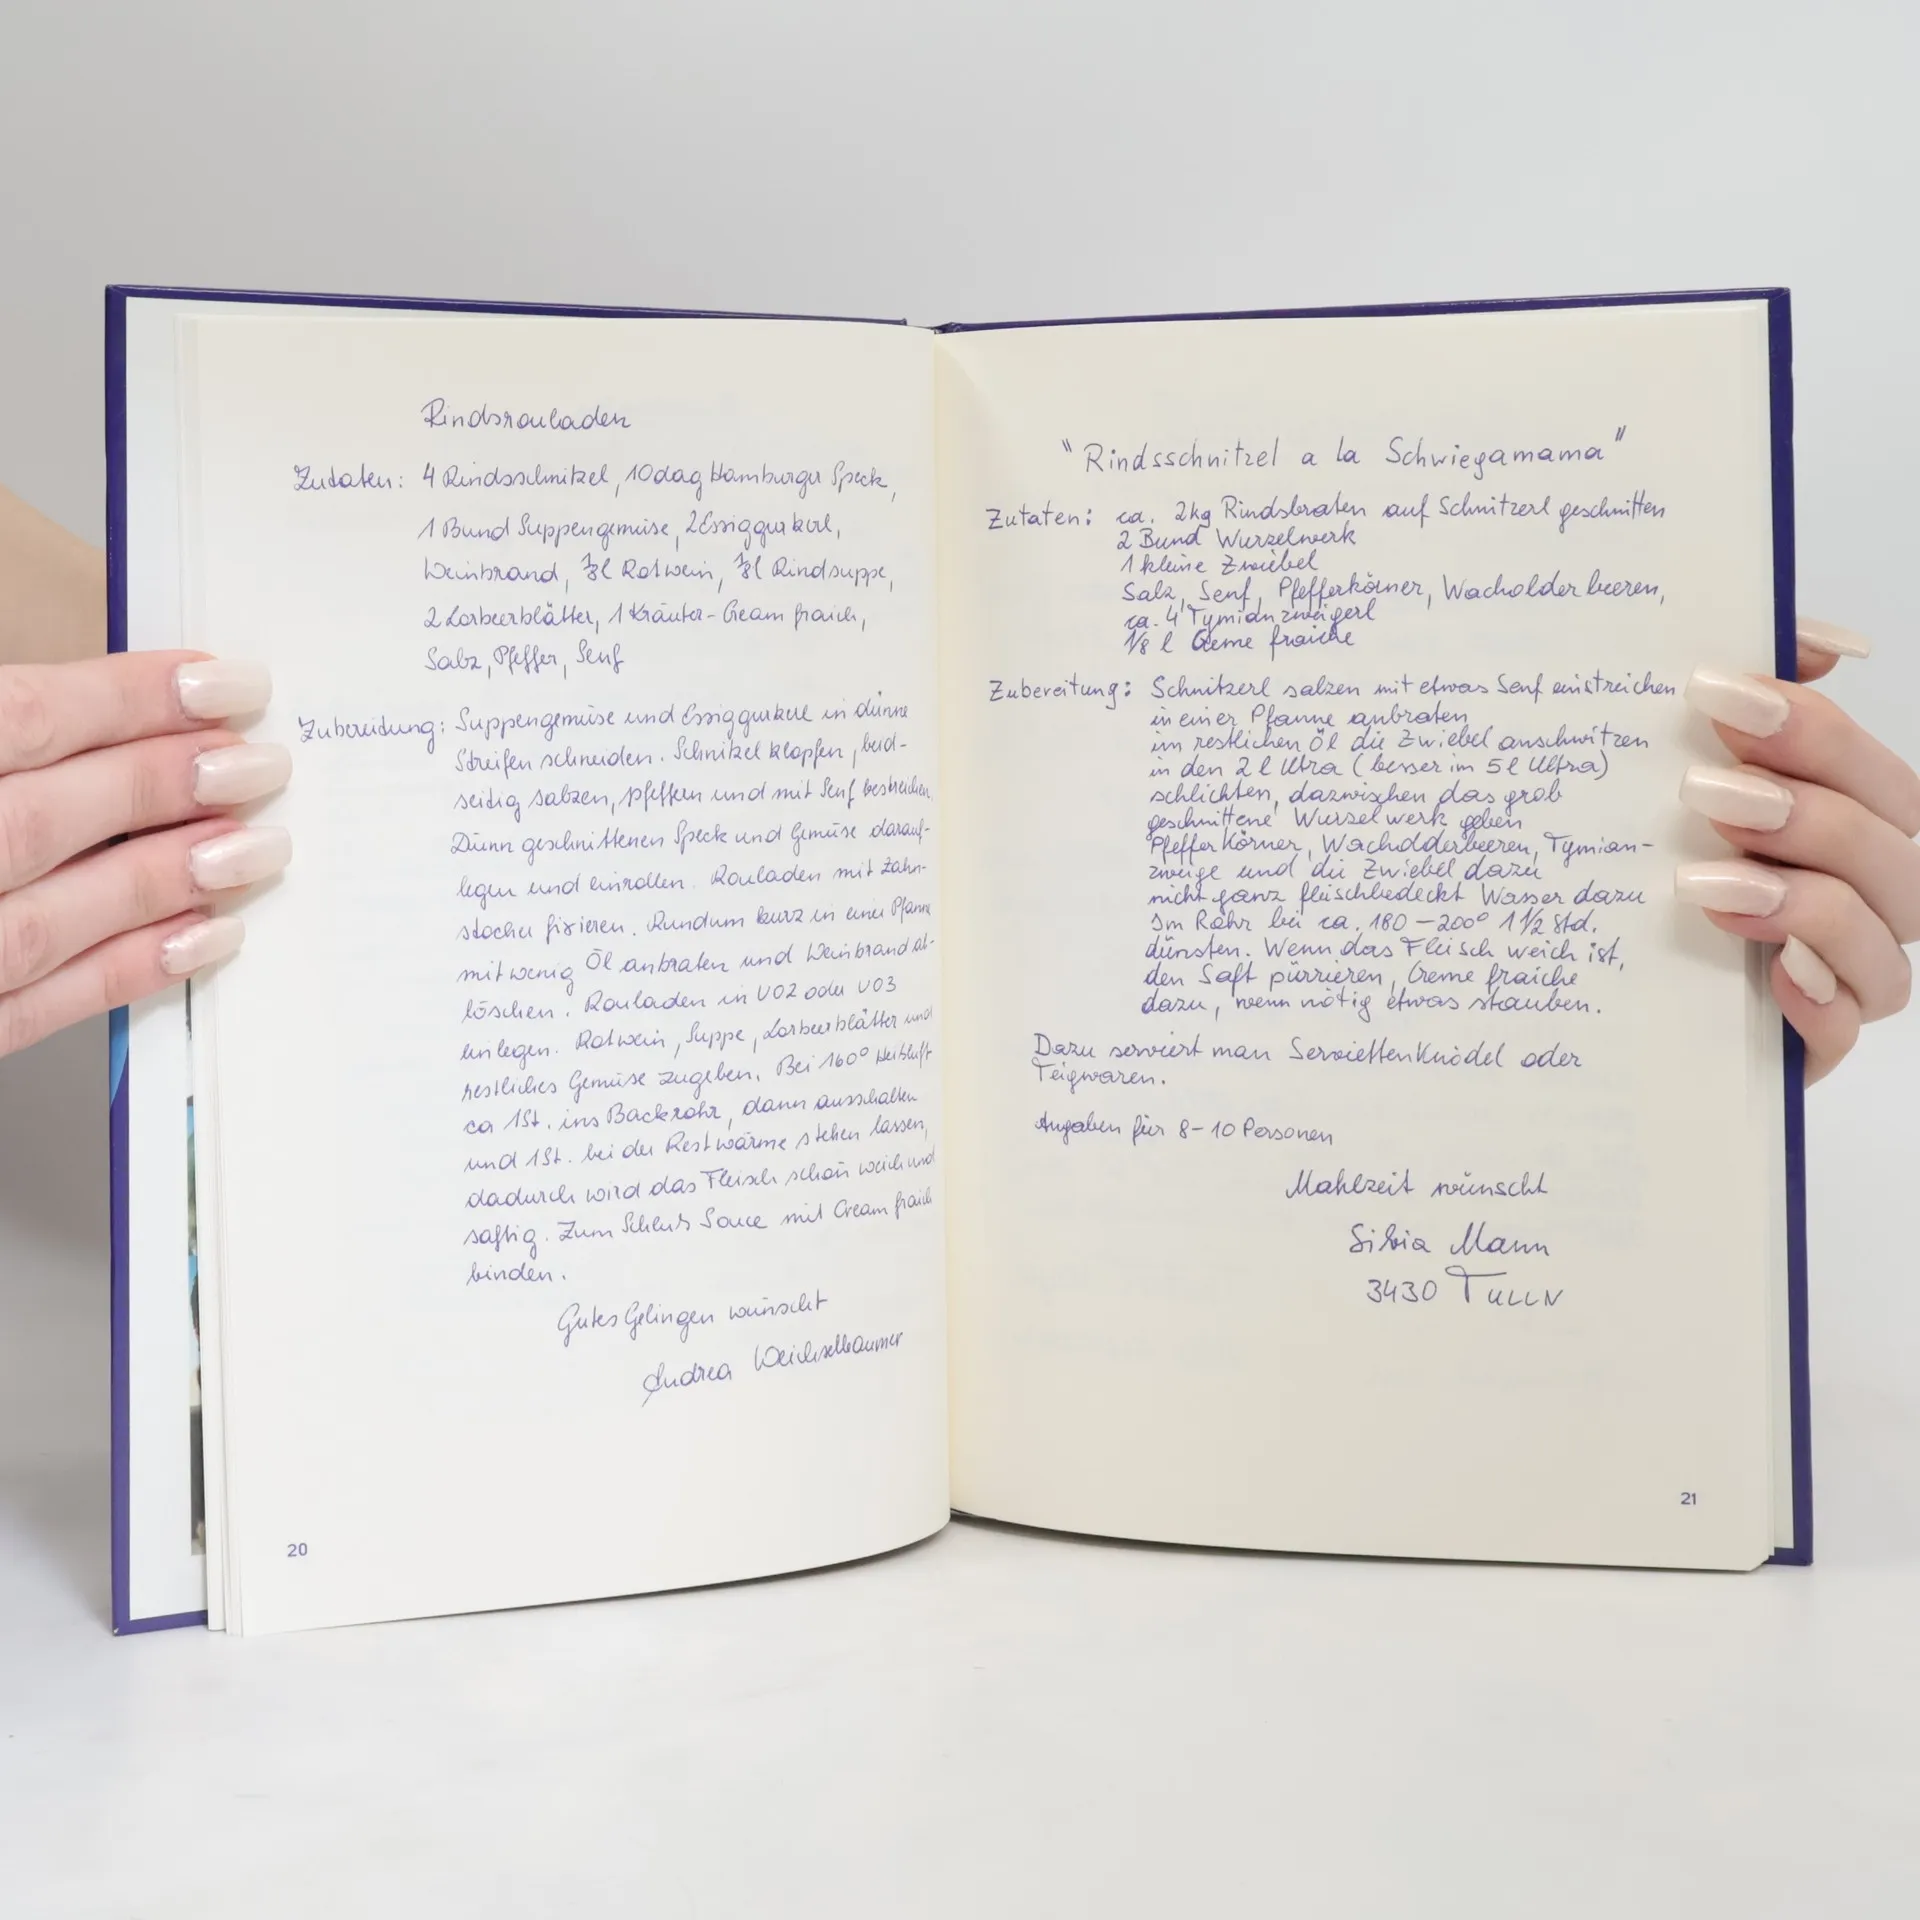 Rindsrouladen
Zutaten: 4 Rindsschnitzel, 10dag Hamburger Speck,
1 Bund Suppengemüse, 2 Essiggurkerl,
Weinbrand, 1/8 l Rotwein, 1/8 l Rindsuppe,
2 Lorbeerblätter, 1 Kräuter-Cream fraich,
Salz, Pfeffer, Senf
Zubereitung: Suppengemüse und Essiggurkerl in dünne
Streifen schneiden. Schnitzel klopfen, beid-
seitig salzen, pfeffern und mit Senf bestreichen.
Dünn geschnittenen Speck und Gemüse darauf-
legen und einrollen. Rouladen mit Zahn-
stocher fixieren. Rundum kurz in einer Pfanne
mit wenig Öl anbraten und Weinbrand ab-
löschen. Rouladen in UO2 oder UO3
einlegen. Rotwein, Suppe, Lorbeerblätter und
restliches Gemüse zugeben. Bei 160° Heißluft
ca 1St. ins Backrohr, dann ausschalten
und 1St. bei der Restwärme stehen lassen,
dadurch wird das Fleisch schön weich und
saftig. Zum Schluß Sauce mit Cream fraich
binden.
Gutes Gelingen wünscht
Andrea Weichselbaumer
20
"Rindsschnitzel a la Schwiegamama"
Zutaten: ca. 2kg Rindsbraten auf Schnitzerl geschnitten
2 Bund Wurzelwerk
1 kleine Zwiebel
Salz, Senf, Pfefferkörner, Wacholderbeeren,
ca. 4 Tymianzweigerl
1/8 l Creme fraiche
Zubereitung: Schnitzerl salzen mit etwas Senf einstreichen
in einer Pfanne anbraten
im restlichen Öl die Zwiebel anschwitzen
in den 2 l Ultra (besser im 5 l Ultra)
schlichten, dazwischen das grob
geschnittene Wurzelwerk geben
Pfefferkörner, Wacholderbeeren, Tymian-
zweige und die Zwiebel dazu
nicht ganz fleischbedeckt Wasser dazu
Im Rohr bei ca. 180 - 200° 1 1/2 Std.
dünsten. Wenn das Fleisch weich ist,
den Saft pürrieren, Creme fraiche
dazu, wenn nötig etwas stauben.
Dazu serviert man Serviettenknödel oder
Teigwaren.
Angaben für 8-10 Personen
Mahlzeit wünscht
Silvia Mann
3430 TULLN
21